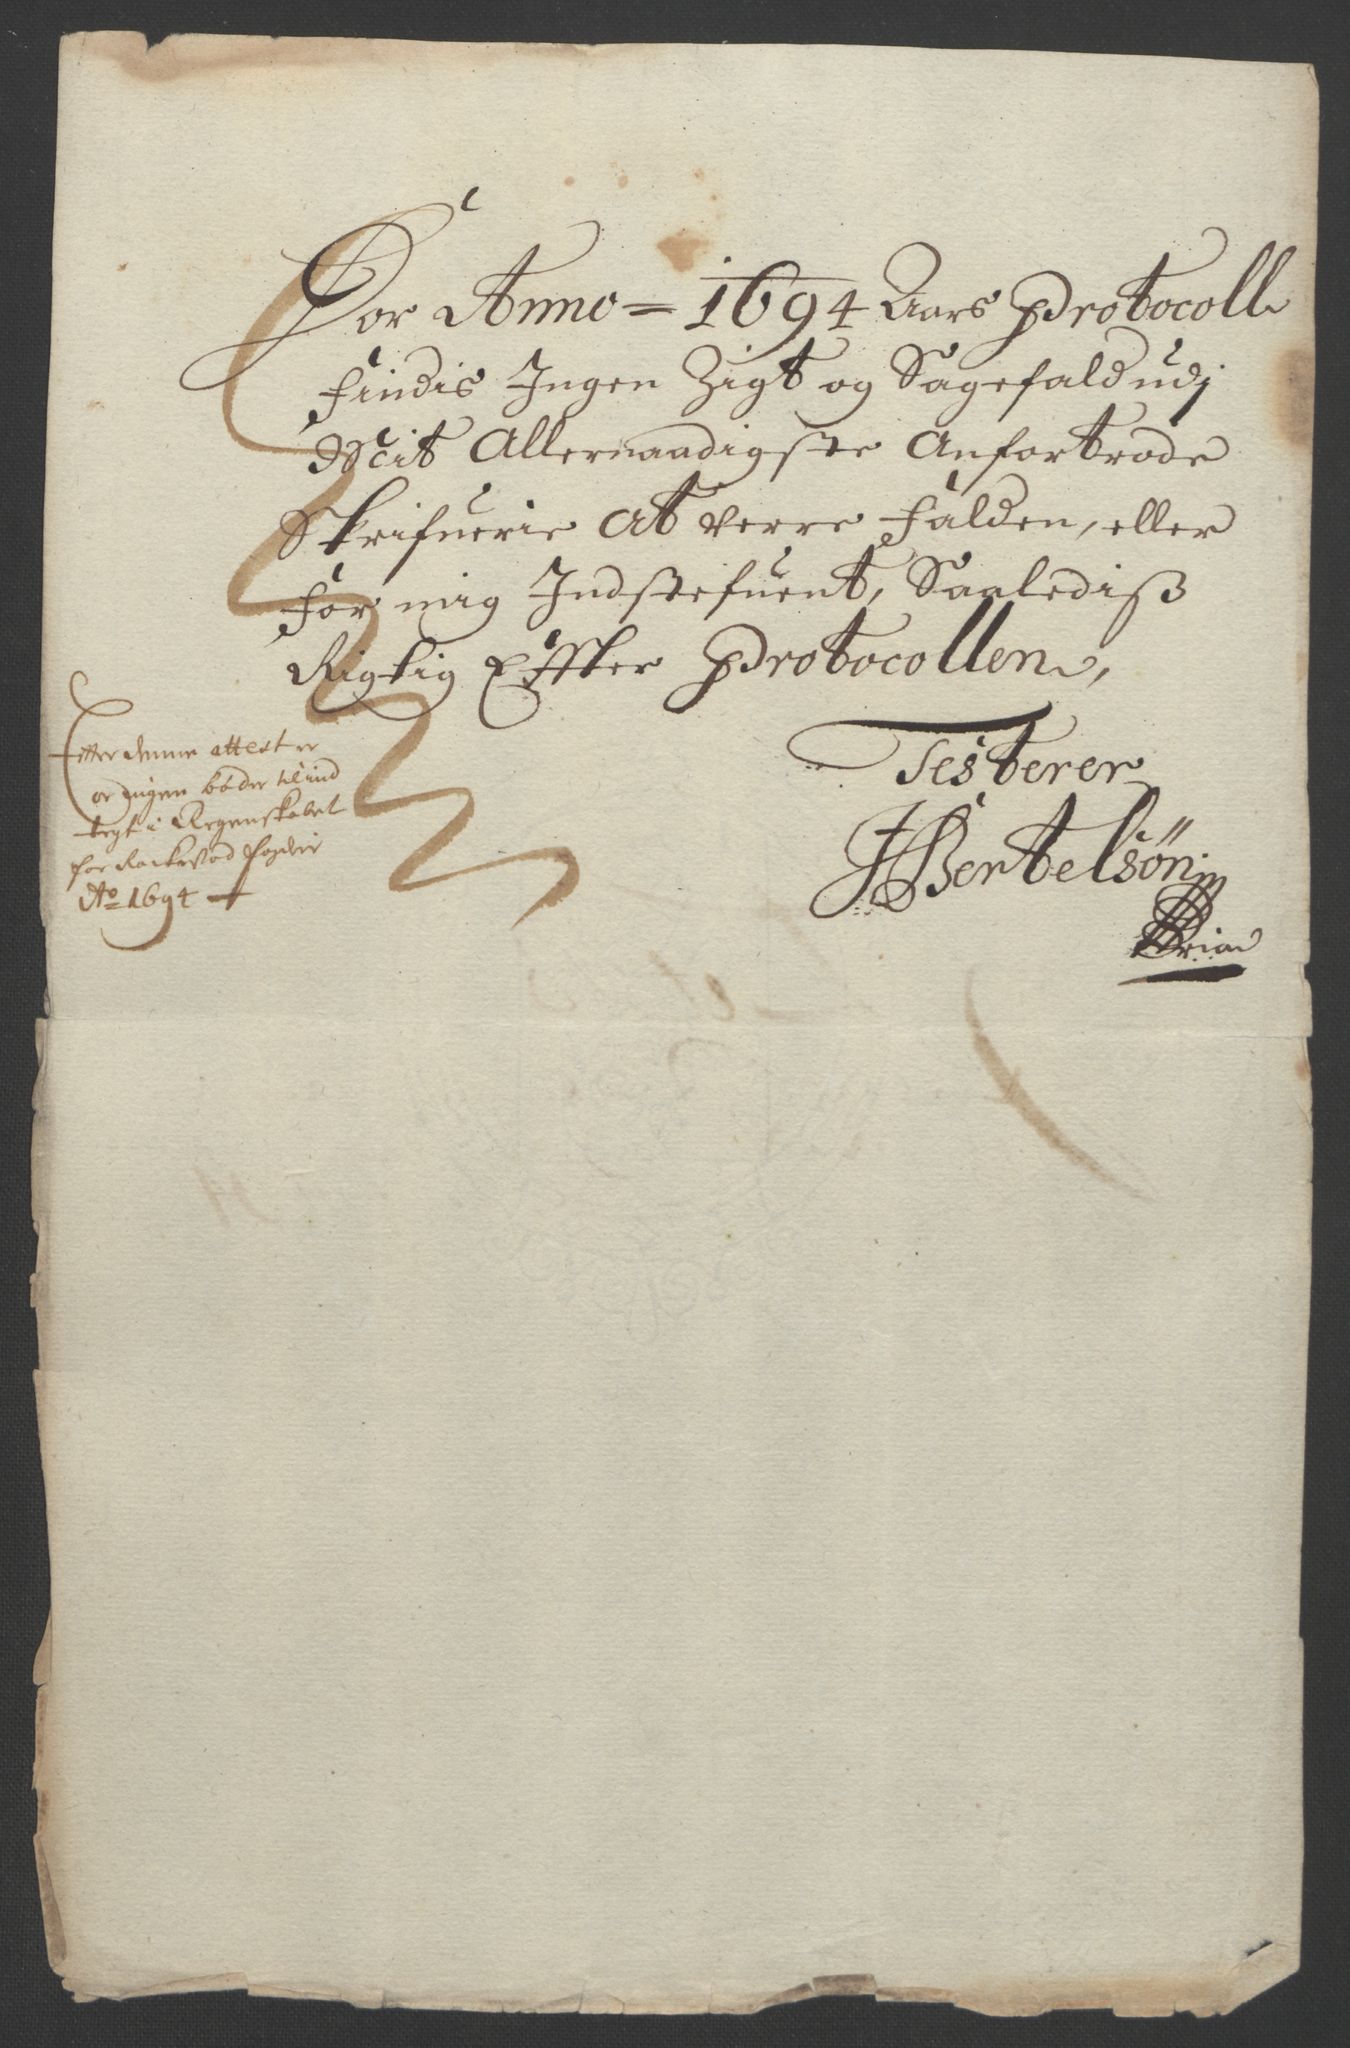 For Anno = 1694 Aars Protocoll
findis Ingen Zigt og Sagefald udj
Mit Allernaadigste Anfortrode
Skrifuerie At verre falden, eller
for mig Indstefuent, Saalediß
Rigtig Effter Protocollen,
Testerer
JBertelsøn
Efter denne attest er
or ingen bøder til ind
tegt i Regenskabet
for fogderie
Ao 1694